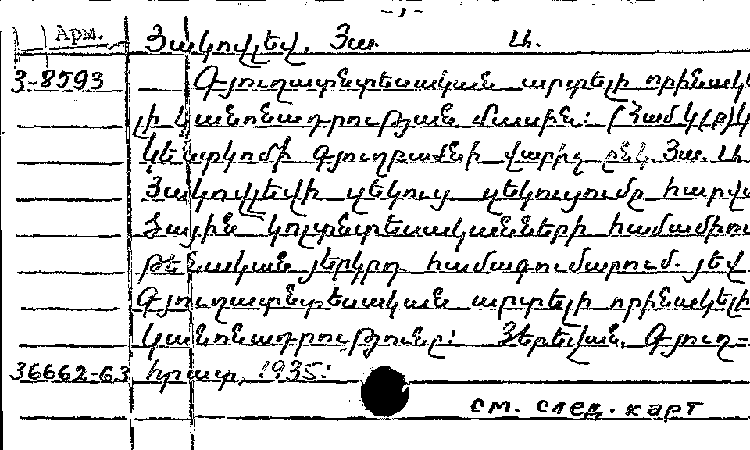 - 1 -
Арм.
Յակովլեվ, Յա. Ա.
3-8593 Գյուղատնտեսական արտելի որինակե
լի կանոնադրության մասին: (Համկ(բ)կ
կենտկոմի գյուղբաժնի վարիչ ընկ. Յա. Ա.
Յակովլեվի զեկուցումը հարվա
ծային կոլտնտեսականների համամիու
թենական յերկրորդ համագումարում. յեվ
Գյուղատնտեսական արտելի որինակելի
կանոնադրությունը: Յերեվան, Գյուղ=
36662-63 հրատ, 1935:
см. след. карт